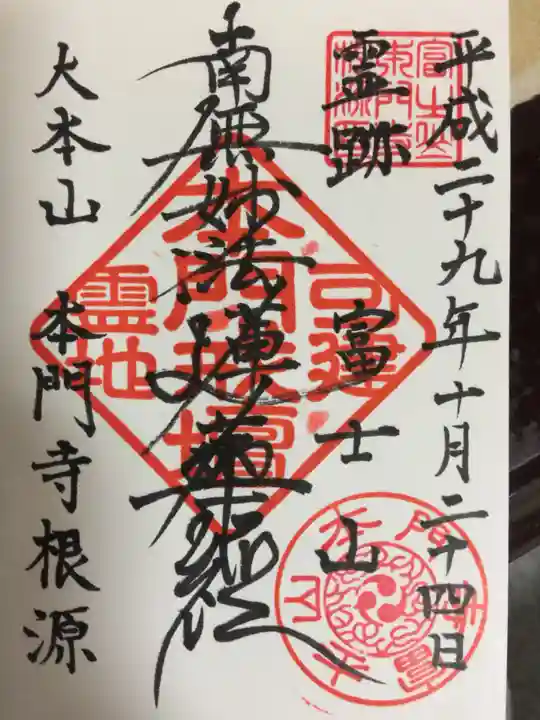 平成二十九年十月二十四日
霊跡 富士山
南無妙法蓮華経
大本山 本門寺根源
可建
本門戒壇
霊地